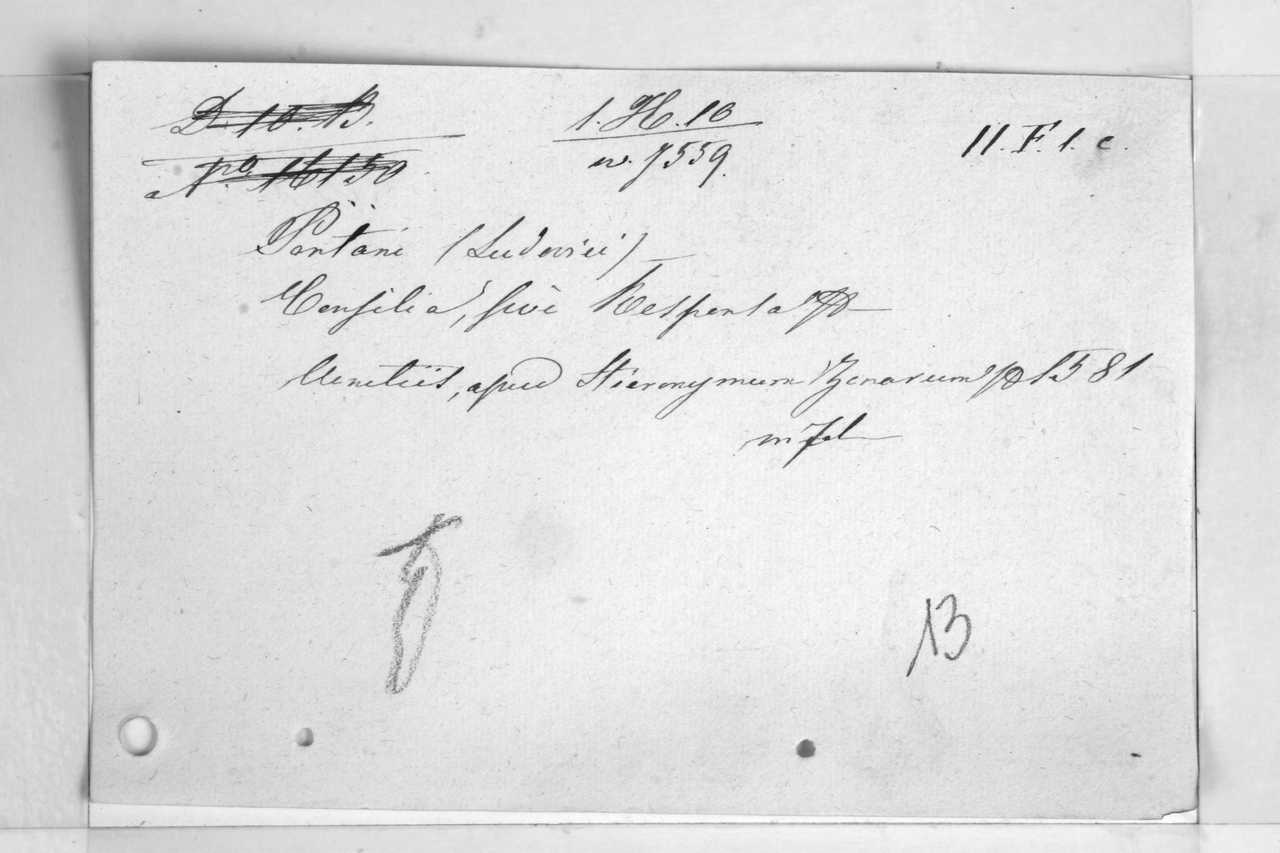 D. 10. B.
1. H. 10
11. F. 1. c.
No. 16150
n. 7559.
Pontani (Ludovici)
Consilia, sive Responsa
Venetiis, apud Hieronymum Zenarum 1581
in fol
13